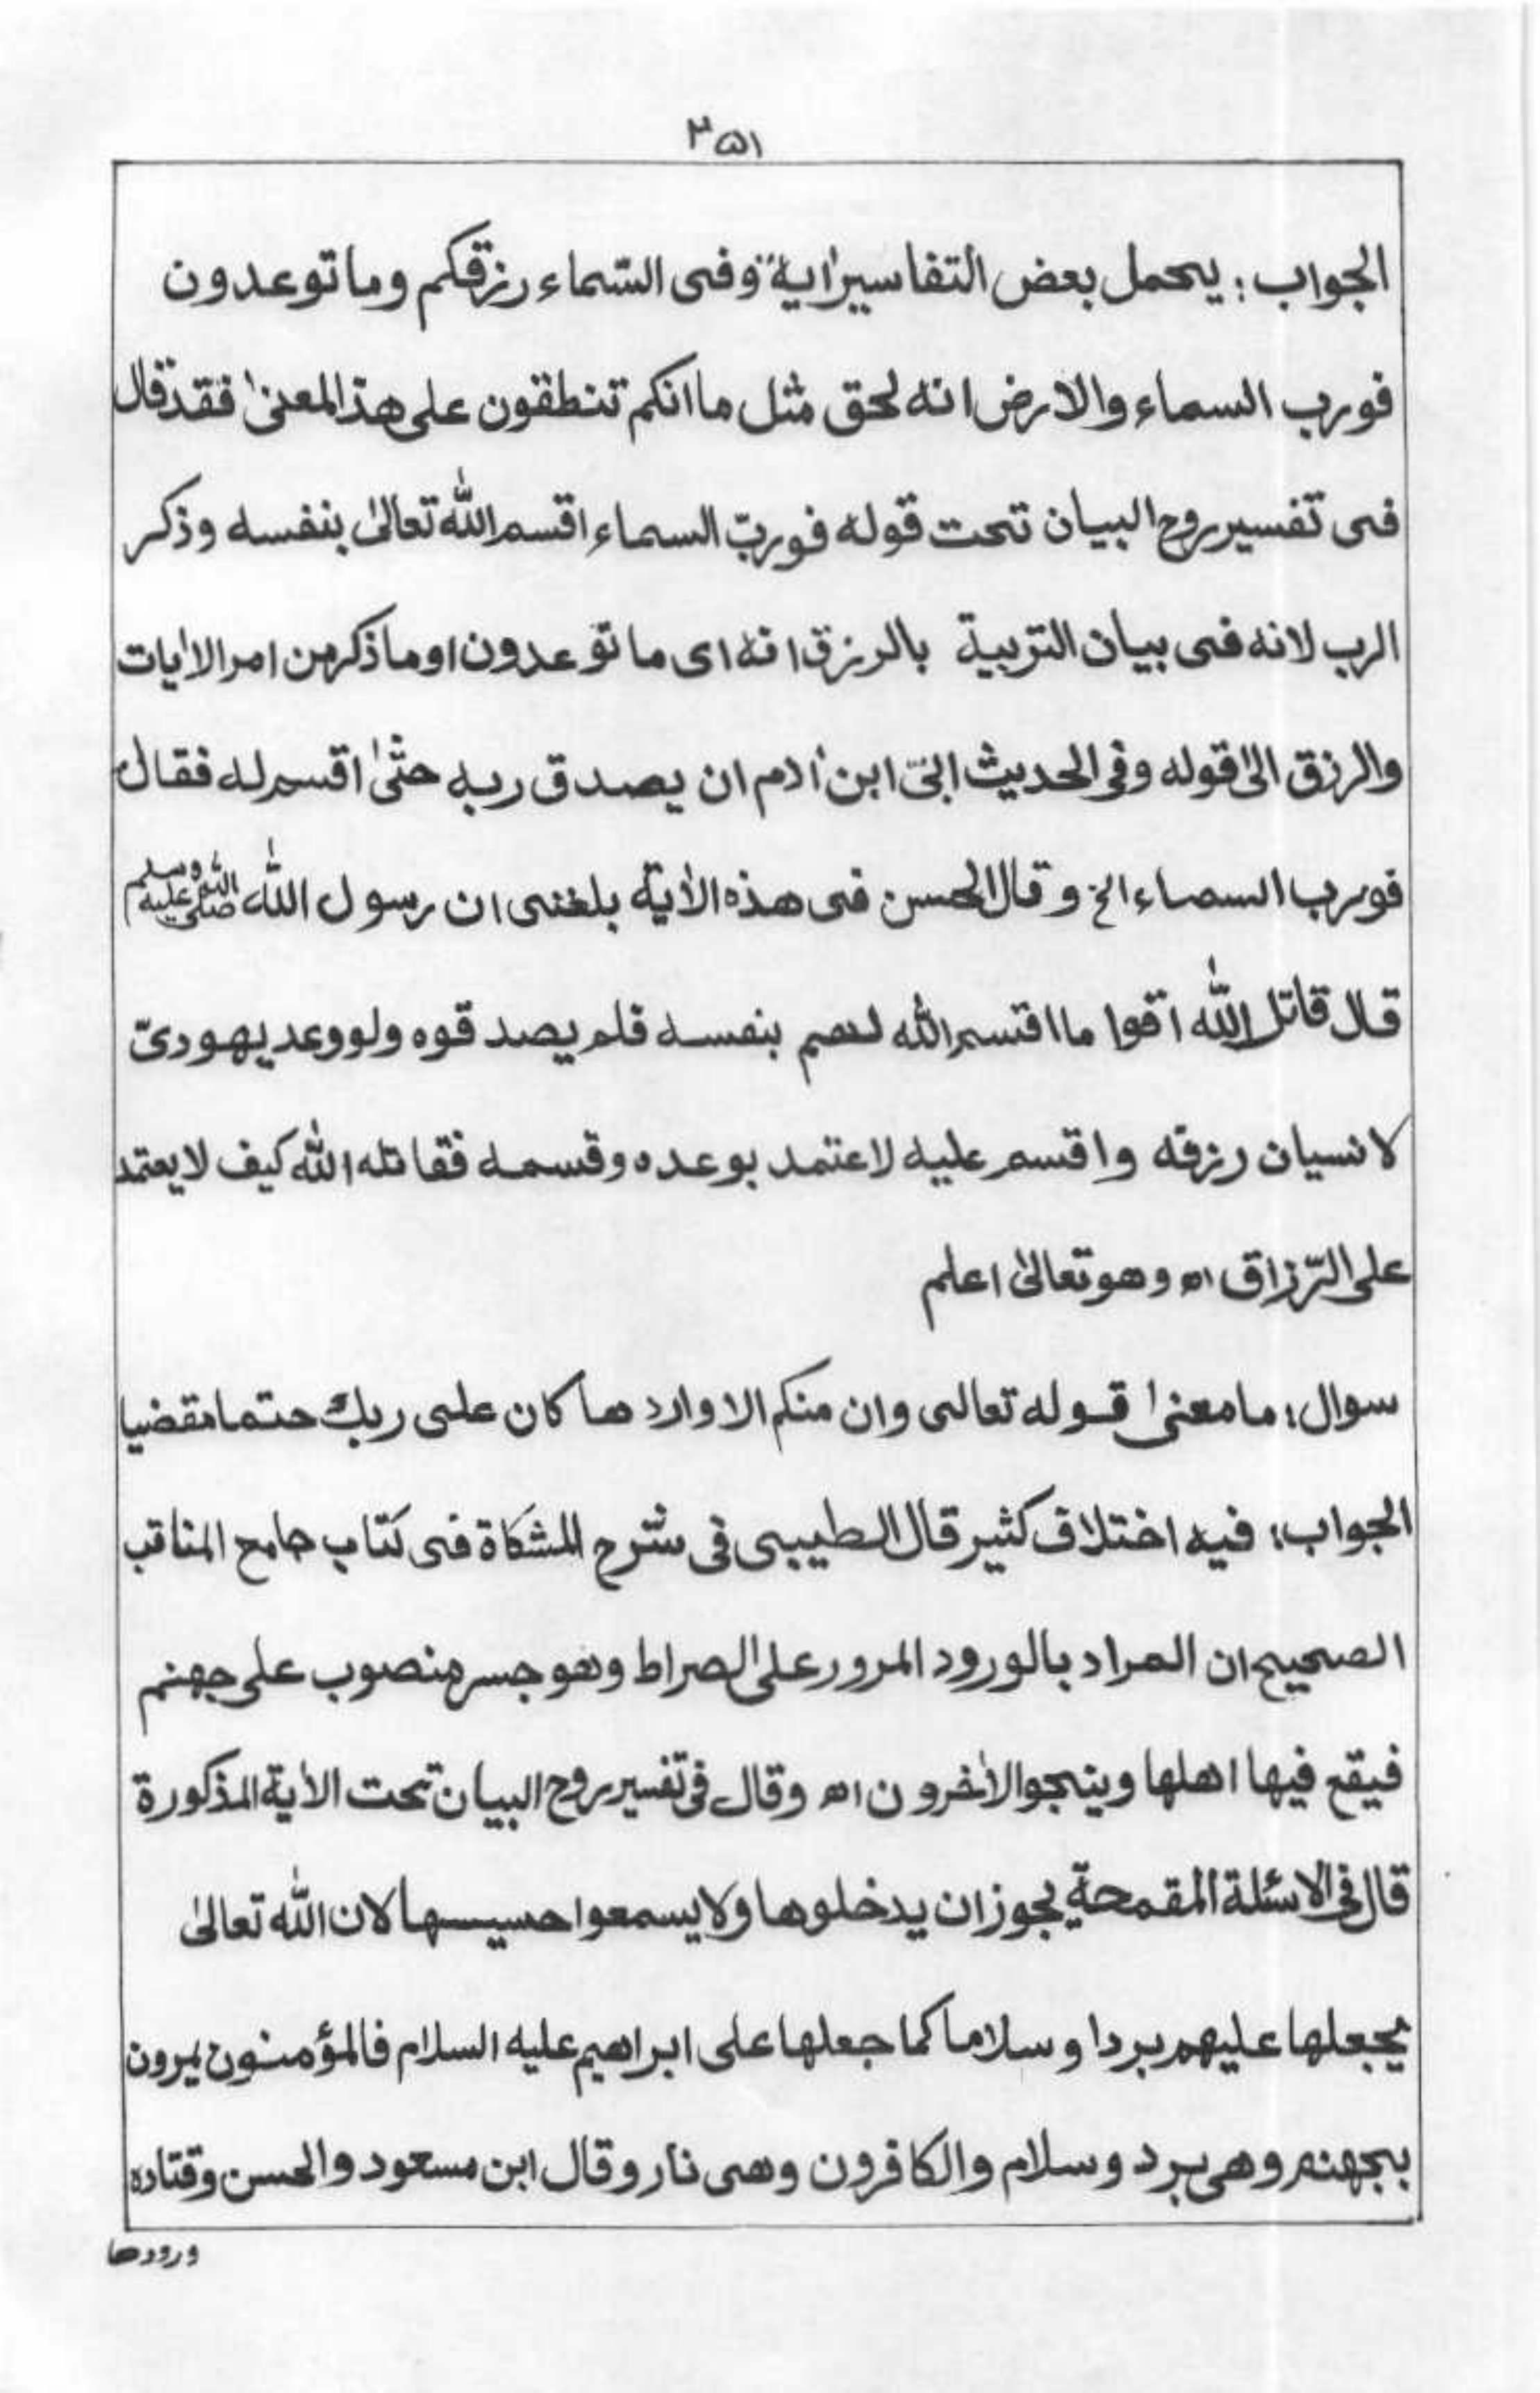 ۳۵۱
الجواب: يحمل بعض التفاسير اٰية "وفى السّماء رزقكم وما توعدون
فورب السماء والارض انه لحق مثل ما انكم تنطقون على هذا المعنىٰ فقد قال
فى تفسير روح البيان تحت قوله فوربّ السماء اقسم اللّٰه تعالىٰ بنفسه وذكر
الرب لانه فى بيان التربية بالرزق انه اى ما توعدون او ما ذكر من امر الاٰيات
والرزق الىٰ قوله وفى الحديث ابىٰ ابن اٰدم ان يصدق ربه حتىٰ اقسم له فقال
فورب السماء الخ وقال الحسن فى هذه الاٰية بلغنى ان رسول اللّٰه صلى الله عليه وسلم
قال قاتل اللّٰه اقوا ما اقسم اللّٰه لهم بنفسه فلم يصدقوه ولو وعد يهودىّ
لانسيان رزقه واقسم عليه لاعتمد بوعده وقسمه فقاتله اللّٰه كيف لا يعتمد
على الرّزاق اھ وهو تعالىٰ اعلم
سوال: ما معنىٰ قوله تعالى وان منكم الا واردها كان على ربك حتما مقضيا
الجواب: فيه اختلاف كثير قال الطيبى فى شرح المشكاة فى كتاب جامع المناقب
الصحيح ان المراد بالورود المرور على الصراط وهو جسر منصوب على جهنم
فيقع فيها اهلها وينجو الاٰخرون اھ وقال فى تفسير روح البيان تحت الاٰية المذكورة
قال فى الاسئلة المقمحة يجوز ان يدخلوها ولا يسمعوا حسيسها لان اللّٰه تعالىٰ
يجعلها عليهم بردا وسلاما كما جعلها على ابراهيم عليه السلام فالمؤمنون يمرون
بجهنم وهى برد وسلام والكافرون وهى نار وقال ابن مسعود والحسن وقتاده
ورودها